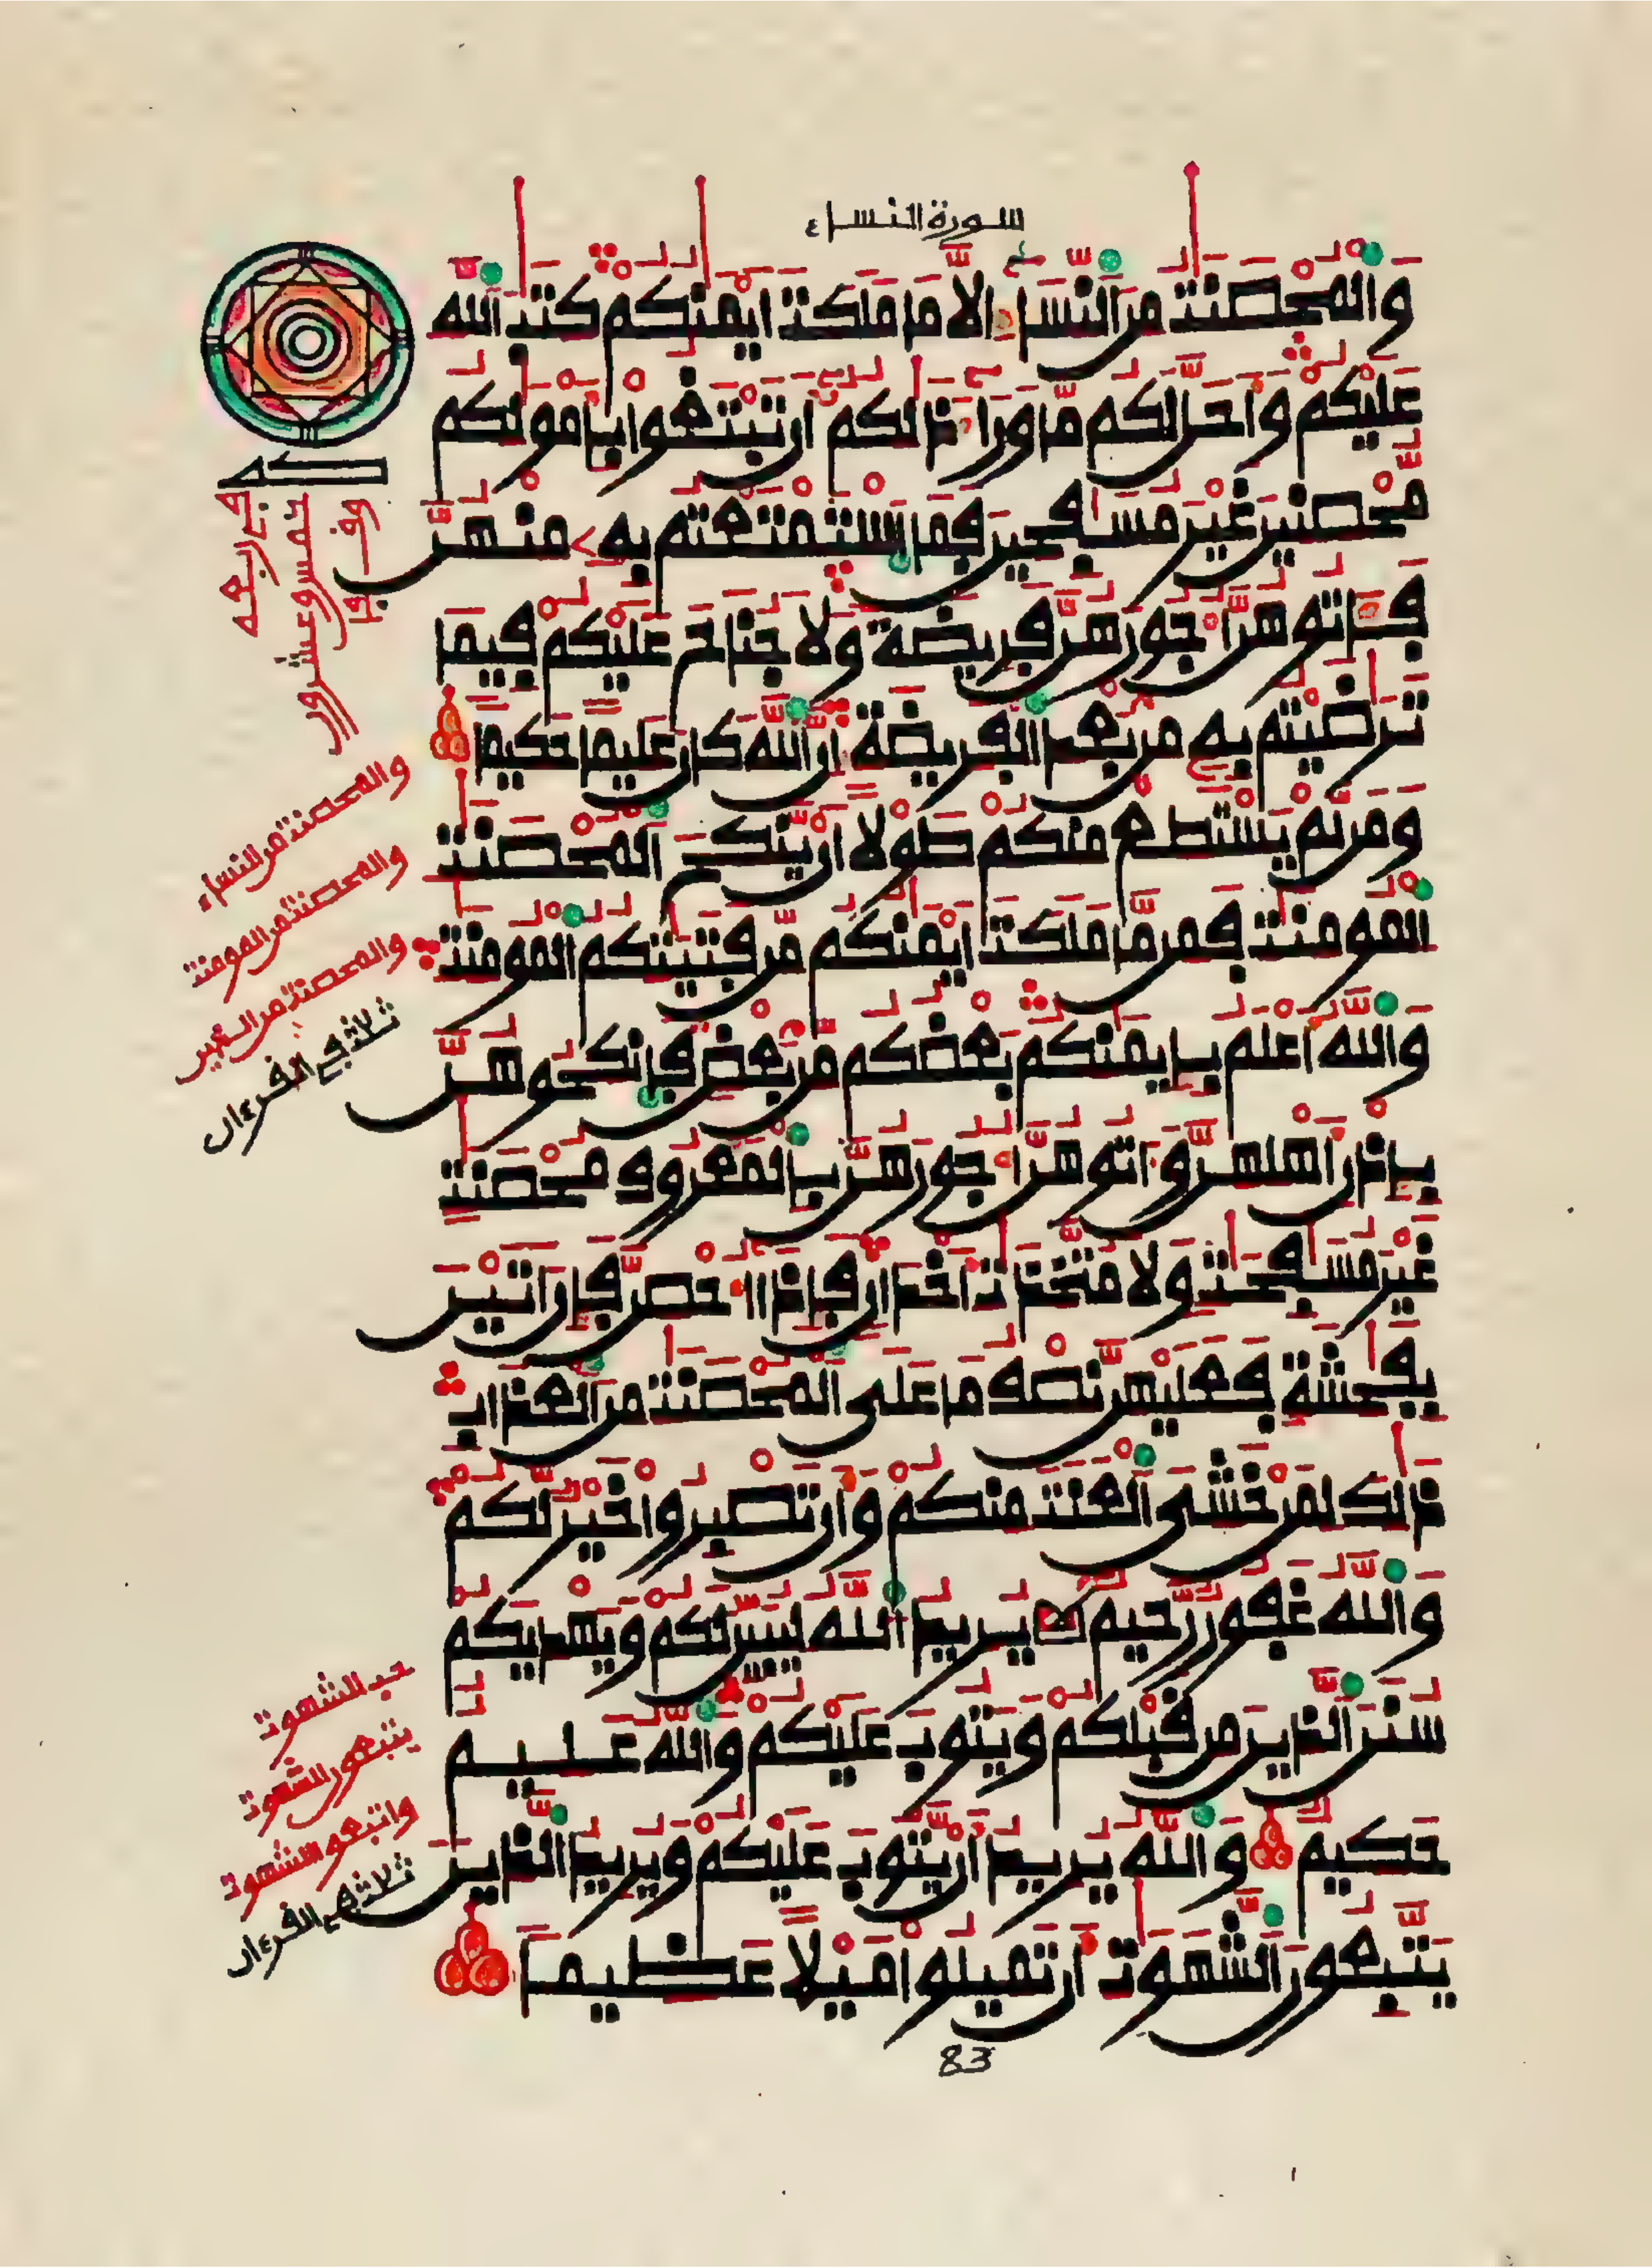 سورة النساء
والمحصنت من النساء الا ما ملكت ايمنكم كتب الله
عليكم واحل لكم ما وراء ذالكم ان تبتغوا بامولكم
محصنين غير مسافحين فما استمتعتم به منهن
فاتوهن اجورهن فريضة ولا جناح عليكم فيما
ترضيتم به من بعد الفريضة ان الله كان عليما حكيما
ومن لم يستطع منكم طولا ان ينكح المحصنت
المومنت فمن ما ملكت ايمنكم من فتيتكم المومنت
والله اعلم بايمنكم بعضكم من بعض فانكحوهن
باذن اهلهن واتوهن اجورهن بالمعروف محصنت
غير مسافحت ولا متخذات اخدان فاذا احصن فان اتين
بفحشة فعليهن نصف ما على المحصنت من العذاب
ذالك لمن خشى العنت منكم وان تصبروا خير لكم
والله غفور رحيم يريد الله ليبين لكم ويهديكم
سنن الذين من قبلكم ويتوب عليكم والله عليم
حكيم والله يريد ان يتوب عليكم ويريد الذين
يتبعون الشهوت ان تميلوا ميلا عظيما
والمحصنت من النساء
والمحصنت من المومنت
ثلاث في القرءان
حب الشهوت
يتبعون الشهوت
واتبعوا الشهوت
ثلاث في القرءان
83